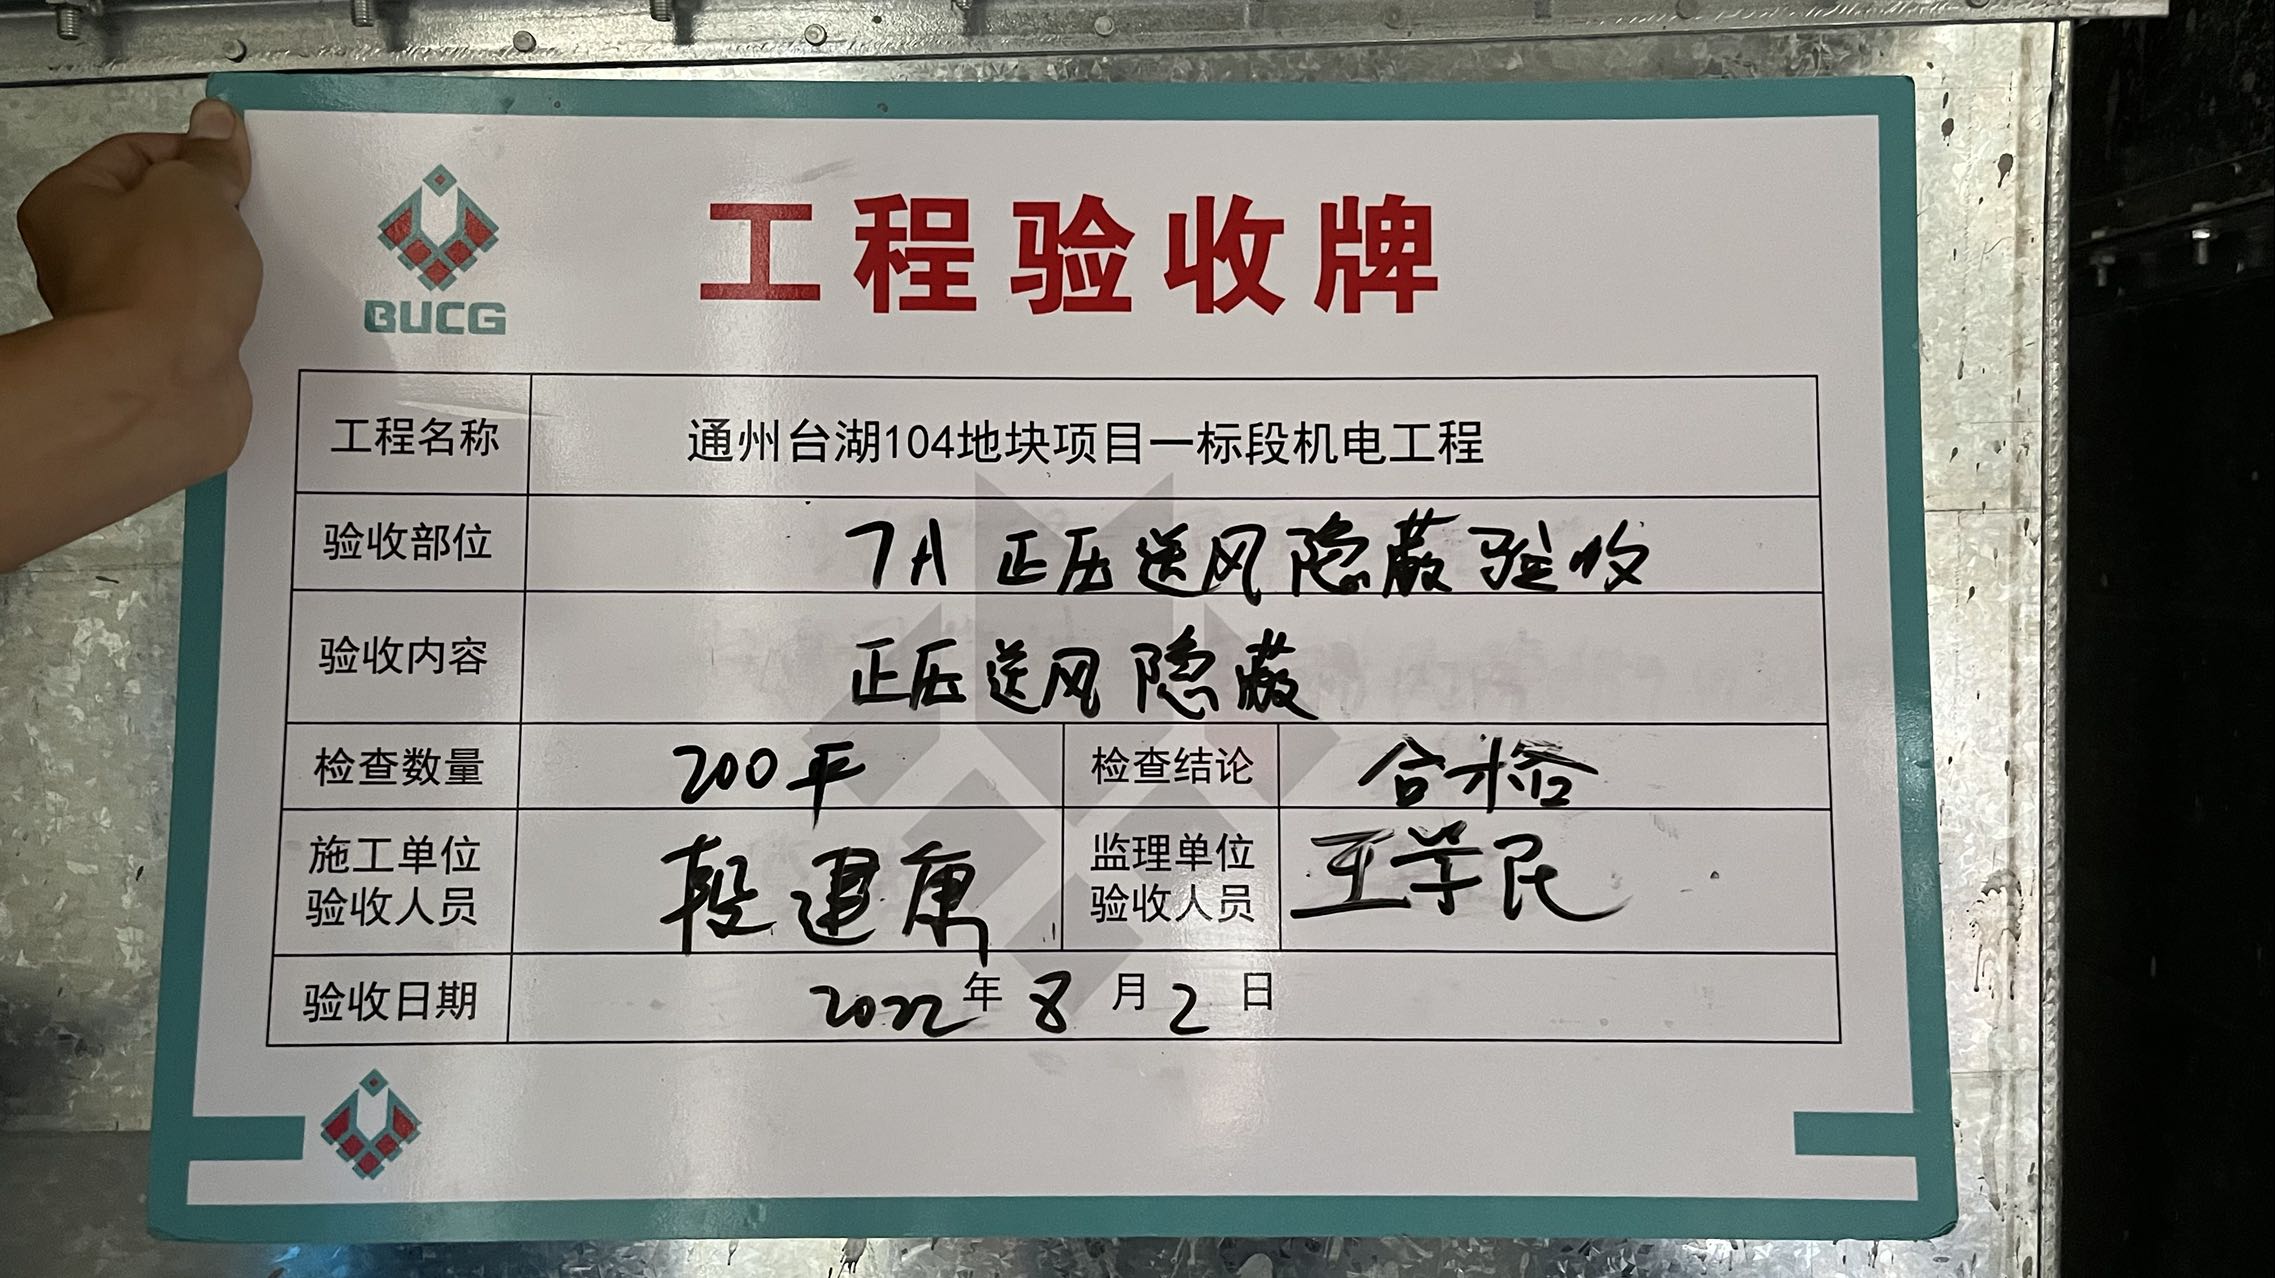 BUCG
工程验收牌
工程名称 通州台湖104地块项目一标段机电工程
验收部位 7A 正压送风隐蔽验收
验收内容 正压送风隐蔽
检查数量 200平 检查结论 合格
施工单位验收人员 段建康 监理单位验收人员 王学民
验收日期 2022年8月2日